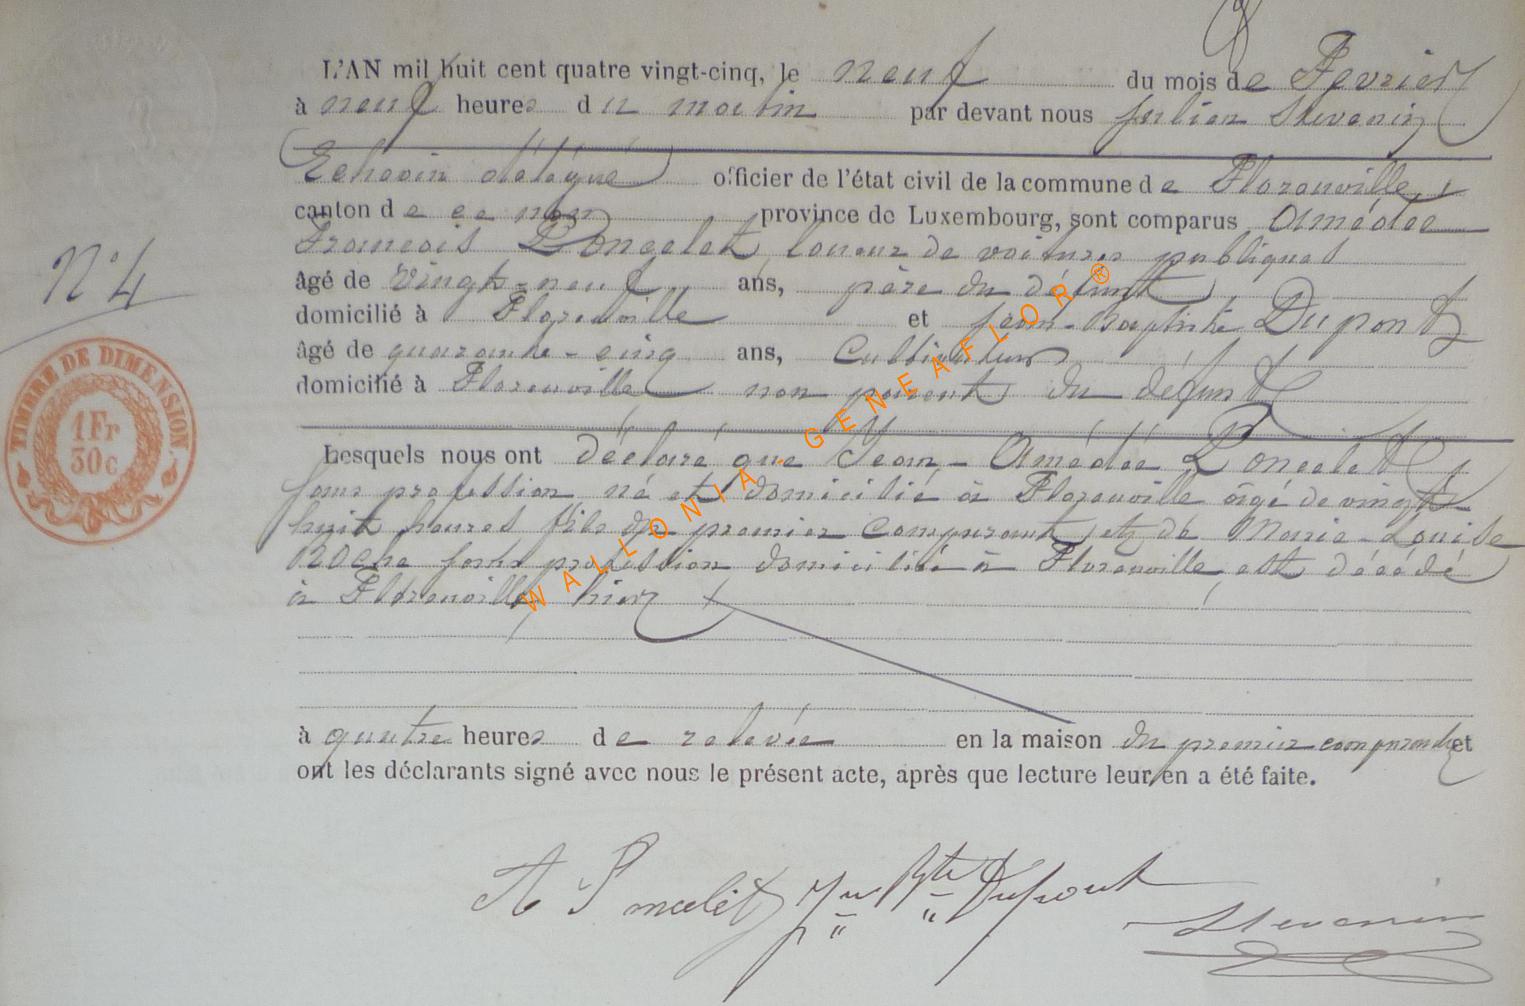 L'AN mil huit cent quatre vingt-cinq, le neuf du mois de Fevrier
à neuf heures du matin par devant nous Julien Stevenin
Echevin délégué officier de l'état civil de la commune de Florenville,
canton de ce nom province de Luxembourg, sont comparus Amédée
François Poncelet, loueur de voitures publiques
N° 4
âgé de vingt-neuf ans, père du défunt
domicilié à Florenville et Jean-Baptiste Dupont
âgé de quarante-cinq ans, Cultivateur
domicilié à Florenville non parent du défunt
TIMBRE DE DIMENSION.
1 Fr
30c
Lesquels nous ont déclaré que Jean-Amédée Poncelet,
sans profession né et domicilié à Florenville âgé de vingt
huit heures fils du premier comparant, et de Marie-Louise
Roche sans profession domiciliée à Florenville, est décédé
à Florenville, hier
à quatre heures de relevée en la maison du premier comparant et
ont les déclarants signé avec nous le présent acte, après que lecture leur en a été faite.
A Poncelet Jn Bte Dupont
Stevenin
WALLONIA - GENEAFLOR®